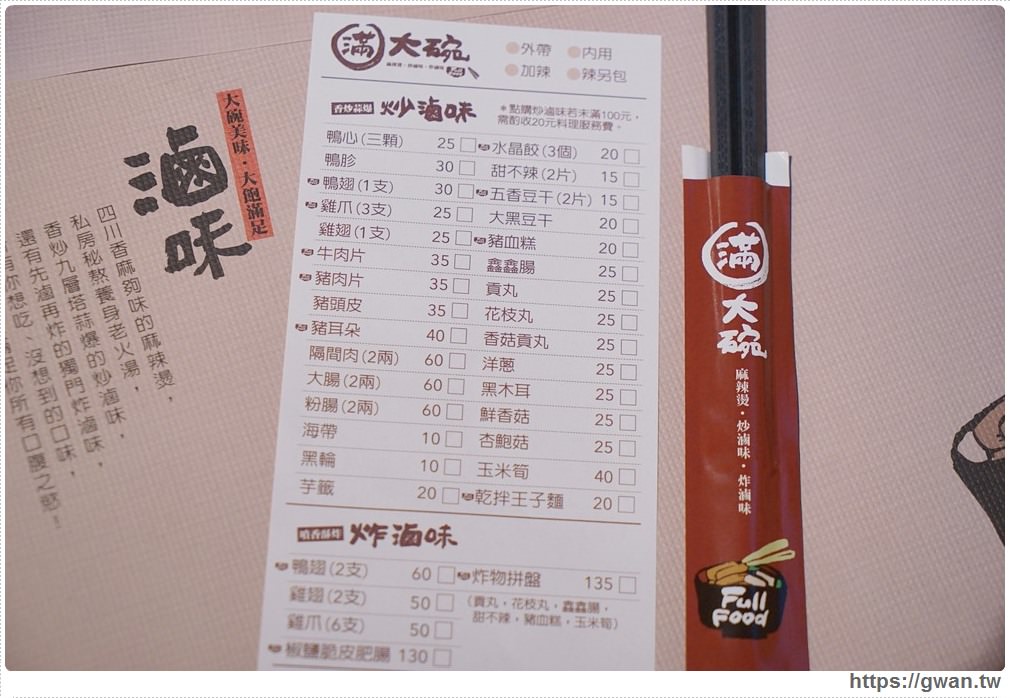 大碗美味・大飽滿足
滷味
四川香麻夠味的麻辣燙，
私房秘熬養身老火湯，
香炒九層塔蒜爆的炒滷味，
還有先滷再炸的獨門炸滷味，
想吃、沒想到的口味，
你所有口腹之慾！
滿大碗
麻辣燙・炒滷味・炸滷味
外帶 內用
加辣 辣另包
香炒蒜爆 炒滷味
＊點購炒滷味若未滿100元，
需酌收20元料理服務費。
鴨心(三顆) 25 水晶餃(3個) 20
鴨胗 30 甜不辣(2片) 15
鴨翅(1支) 30 五香豆干(2片) 15
雞爪(3支) 25 大黑豆干 20
雞翅(1支) 25 豬血糕 20
牛肉片 35 鑫鑫腸 25
豬肉片 35 貢丸 25
豬頭皮 35 花枝丸 25
豬耳朵 40 香菇貢丸 25
隔間肉(2兩) 60 洋蔥 25
大腸(2兩) 60 黑木耳 25
粉腸(2兩) 60 鮮香菇 25
海帶 10 杏鮑菇 25
黑輪 10 玉米筍 40
芋籤 20 乾拌王子麵 20
噴香酥炸 炸滷味
鴨翅(2支) 60 炸物拼盤 135
雞翅(2支) 50 （貢丸，花枝丸，鑫鑫腸，
雞爪(6支) 50 甜不辣，豬血糕，玉米筍）
椒鹽脆皮肥腸 130
滿大碗
麻辣燙・炒滷味・炸滷味
Full
Food
https://gwan.tw